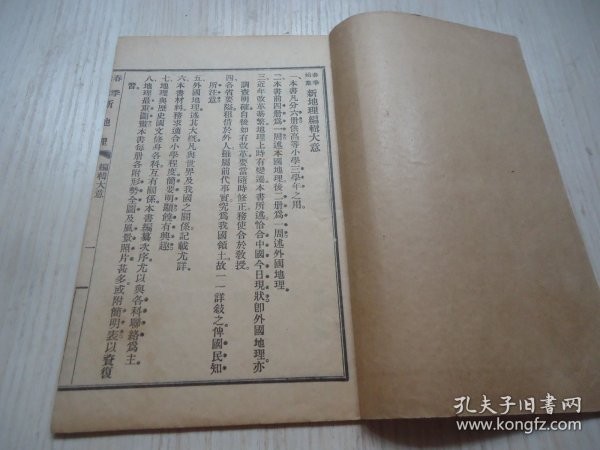 春季始業 新地理編輯大意
一本書凡分六册供高等小學三學年之用。
二本書前四册爲一周述本國地理後二册爲一周述外國地理。
三近年改革綦繁地理上時有變遷本書所述恰合中國今日現狀卽外國地理亦
調查明確自後如有改革要當隨時修正務使合於教授。
四各省要隘租借於外人雖屬前代事實究爲我國領土故一一詳敍之俾國民知
所注意。
五外國地理述其大槪凡與世界及我國之關係記載尤詳。
六本書材料務求適合小學程度簡要明顯饒有興趣。
七地理與歷史國文修身各科互有關係本書編纂次序尤以與各科聯絡爲主。
八地理最重圖畫本書每册各附形勢全圖及風景照片甚多或附簡明表以資復
習。
春季新地理 編輯大意 一
孔夫子旧书网
www.kongfz.com